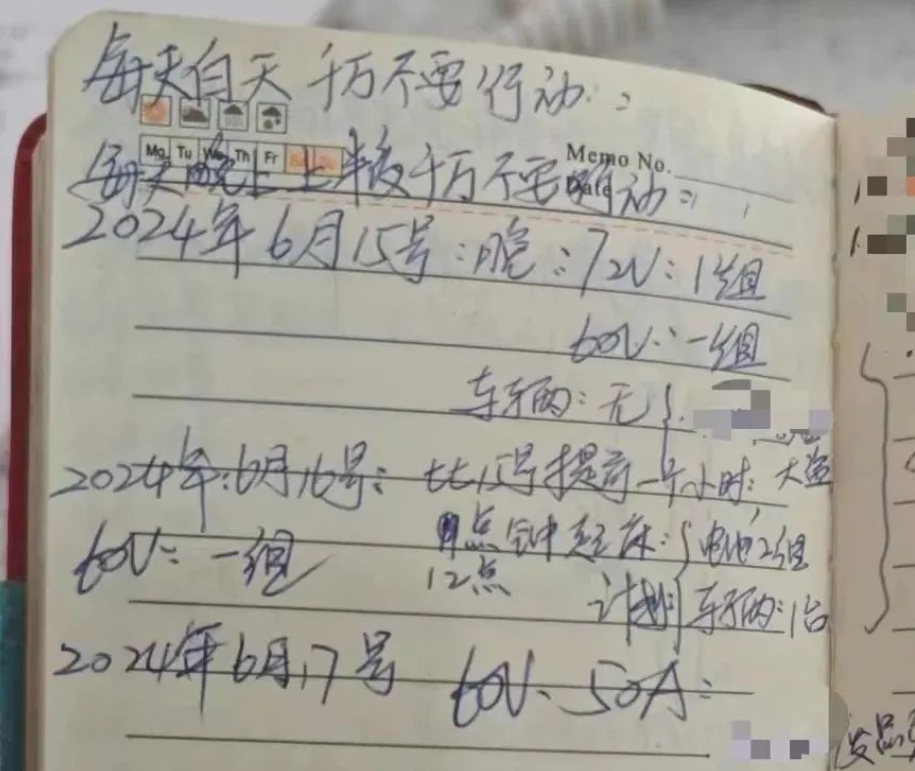 每天白天 千万不要行动:
Mo Tu We Th Fr Sa Su
Memo No.
Date
每天晚上上半夜千万不要行动:
2024年6月15号: 晚: 72V: 1组
60V: 一组
车辆: 无
2024年: 6月16号: 比15号提前一个小时:
点钟起床: 电池2组
60V: 一组
12点
计划: 车辆: 1台
2024年6月17号 60V、50A: